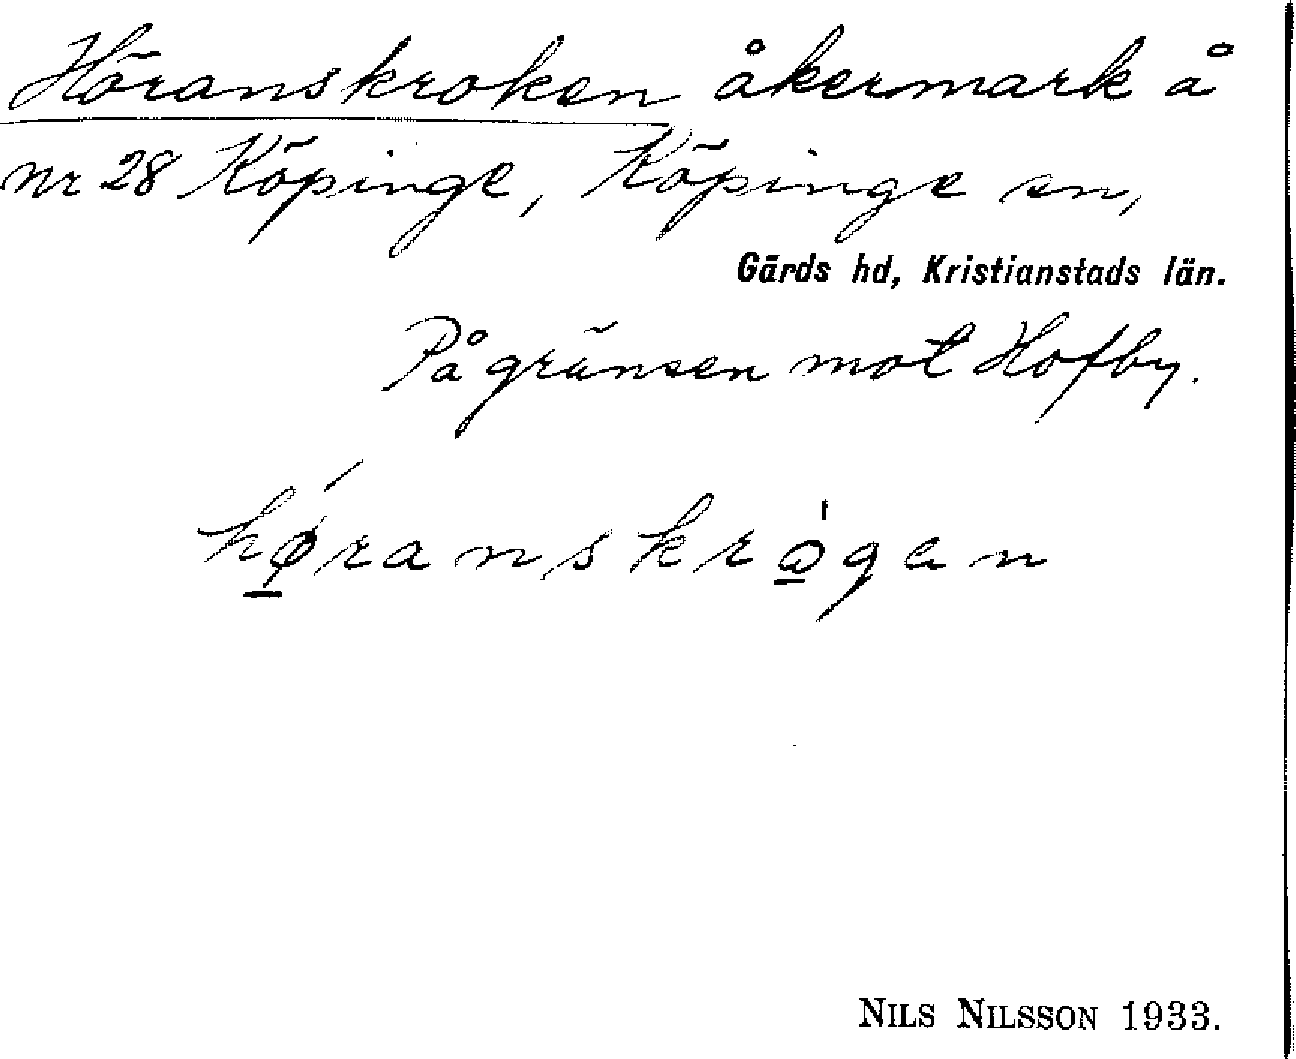 Höranskroken åkermark å
nr 28 Köpinge, Köpinge sn,
Gärds hd, Kristianstads län.
På gränsen mot Hofby.
hǿranskrågan
NILS NILSSON 1933.